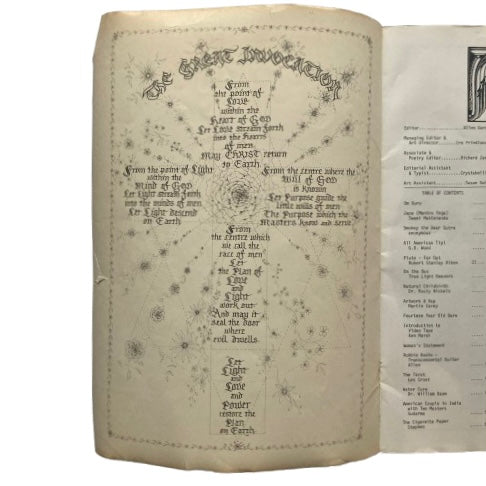 THE GREAT INVOCATION
From
the point of
Love
within the
Heart of GOD
Let Love stream forth
into the hearts
of men
May CHRIST return
to Earth
From the point of Light
within the
Mind of GOD
Let Light stream forth
into the minds of men
Let Light descend
on Earth
From the centre where the
Will of GOD
is known
Let Purpose guide the
little wills of men
The Purpose which the
Masters know and serve
From
the centre which
we call the
race of men
Let
the Plan of
Love
and
Light
work out
And may it
seal the door
where
evil dwells
Let
Light
and
Love
and
Power
restore the
Plan
on Earth
Editor
Managing Editor &
Art Director
Associate &
Poetry Editor
Editorial Assistant
& Typist
Art Assistant
TABLE OF CONTENTS
On Guru
Jane (Mantra Yoga)
Smokey the Bear Sutra
anonymous
All American Tipi
Pluto - Far Out
On the Bus
True Light Beavers
Natural Childbirth
Artwork & Rap
Martin Carey
Fourteen Year Old Guru
Introduction to
Video Tape
Women's Statement
Robbie Basho -
Transcendental Guitar
Allen
The Tarot
Water Cure
American Couple in India
with Ten Masters
Sudarma
The Cigarette Paper
Stephen